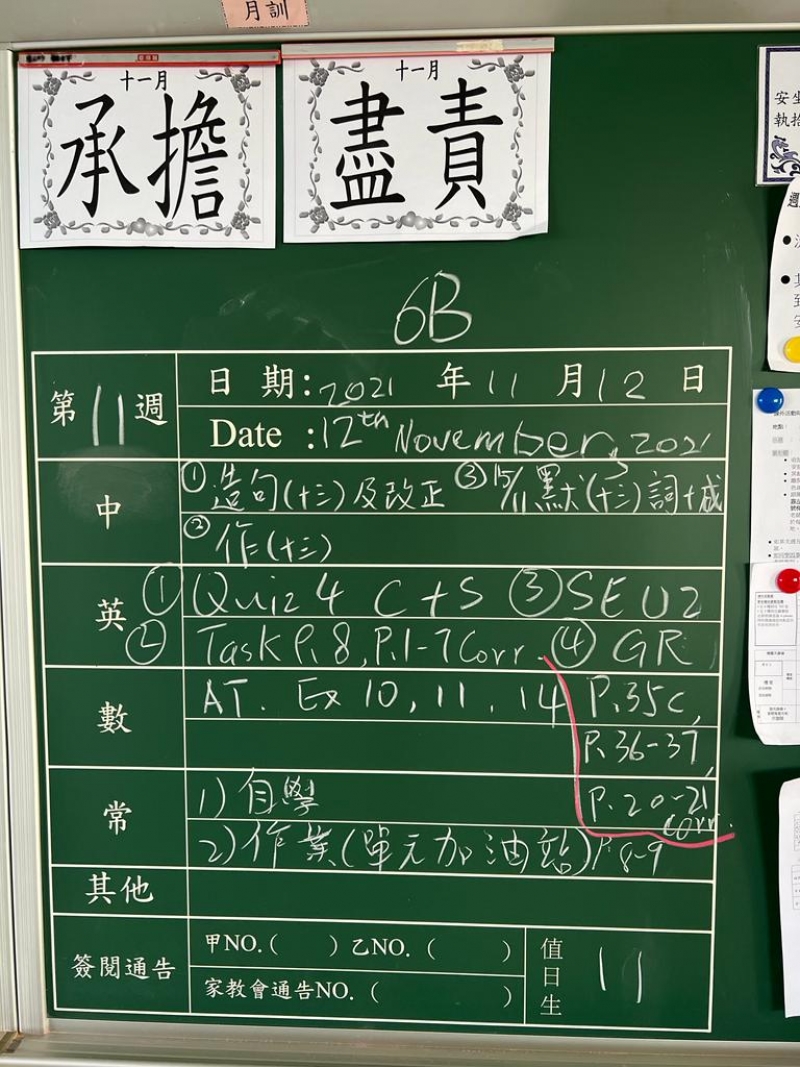 月訓
十一月
承擔
十一月
盡責
安坐
執拾
週
6B
第11週
日期:2021年11月12日
Date :12th November, 2021
中
①造句(十三)及改正 ③15/11默(十三)詞+成
②作(十三)
英
①Quiz 4 C+S ③SE U2
②Task P.8, P.1-7 Corr. ④GR
P.35C,
P.36-37,
P.20-21
corr.
數
AT. Ex 10, 11, 14
常
1)自學
2)作業(單元加油站)P.8-9
其他
簽閱通告
甲NO.( )乙NO.( )
家教會通告NO.( )
值日生
11